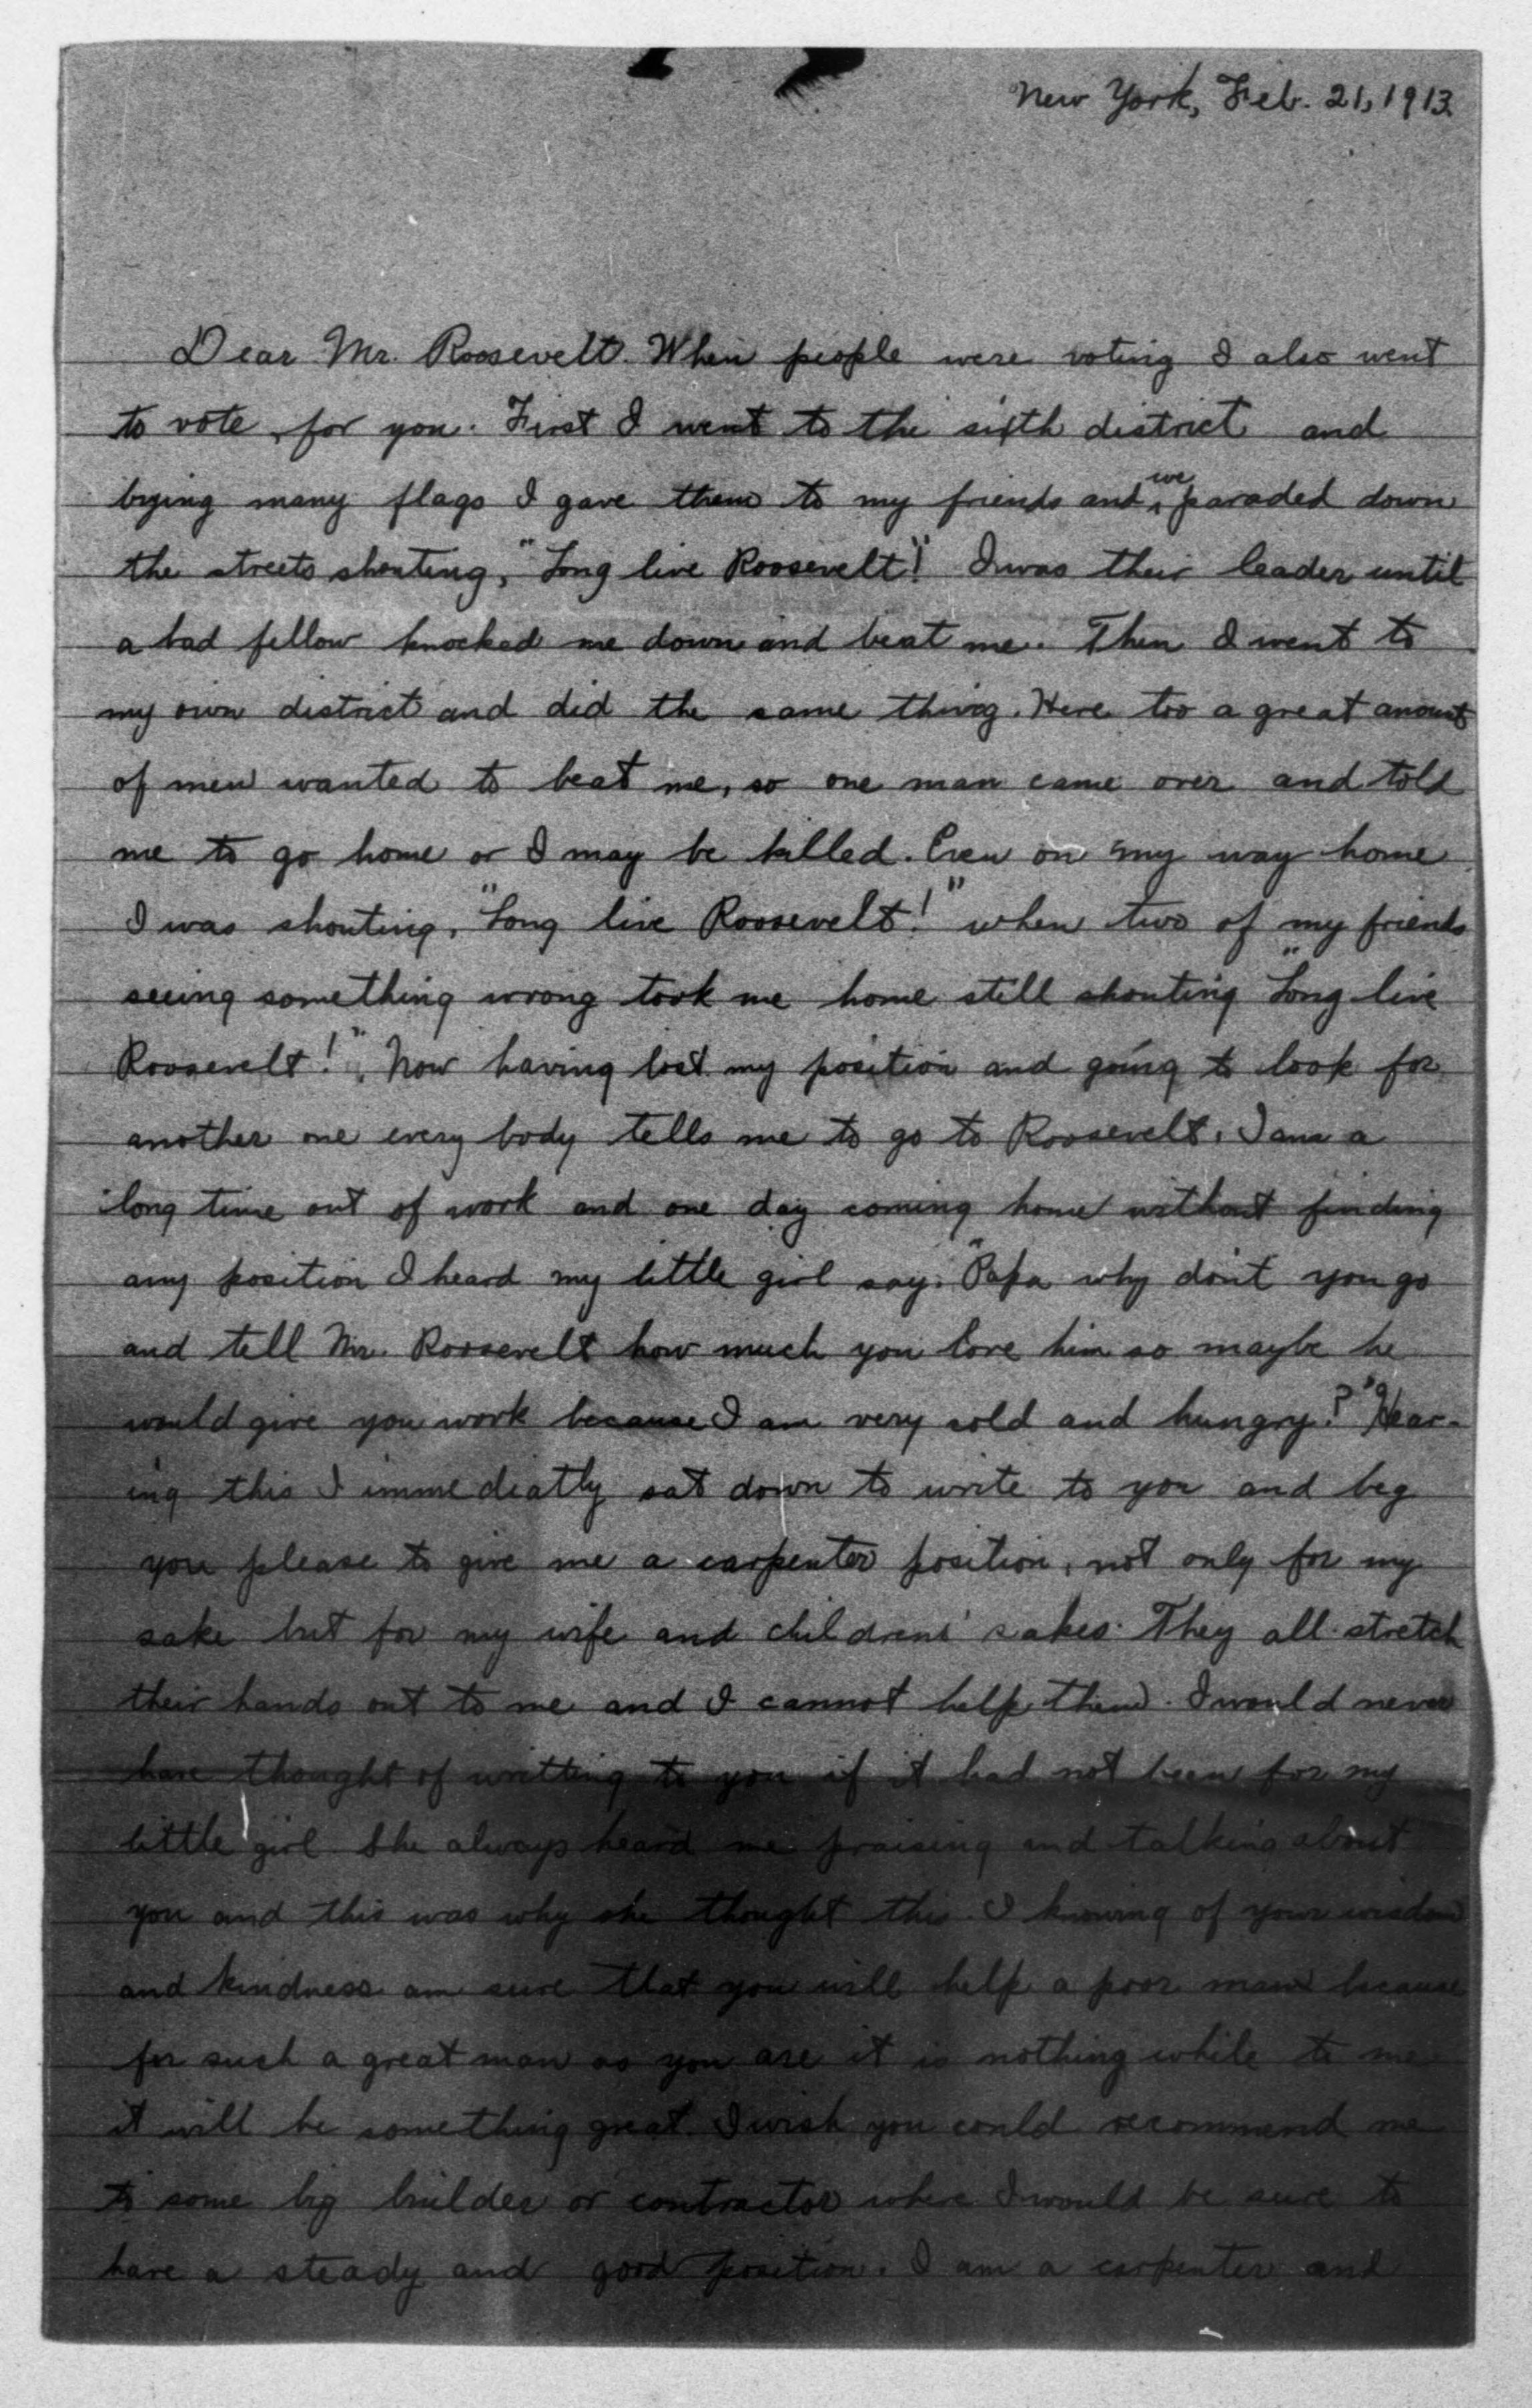 New York, Feb. 21, 1913.
Dear Mr. Roosevelt. When people were voting I also went
to vote for you. First I went to the sixth district and
bying many flags I gave them to my friends and we paraded down
the streets shouting, "Long live Roosevelt"! I was their leader until
a bad fellow knocked me down and beat me. Then I went to
my own district and did the same thing. Here too a great amount
of men wanted to beat me, so one man came over and told
me to go home or I may be killed. Even on my way home
I was shouting, "Long live Roosevelt!" when two of my friends
seeing something wrong took me home still shouting "Long live
Roosevelt!". Now having lost my position and going to look for
another one every body tells me to go to Roosevelt. I am a
long time out of work and one day coming home without finding
any position I heard my little girl say. "Papa why don't you go
and tell Mr. Roosevelt how much you love him so maybe he
would give you work because I am very cold and hungry?" Hear-
ing this I immediatly sat down to write to you and beg
you please to give me a carpenter position, not only for my
sake but for my wife and childrens' sakes. They all stretch
their hands out to me and I cannot help them. I would never
have thought of writting to you if it had not been for my
little girl. She always heard me praising and talking about
you and this was why she thought this. I knowing of your wisdom
and kindness am sure that you will help a poor man because
for such a great man as you are it is nothing while to me
it will be something great. I wish you could recommend me
to some big builder or contractor where I would be sure to
have a steady and good position. I am a carpenter and